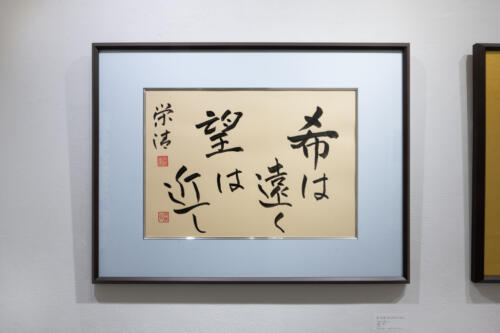 希は
遠く
望は
近し
栄清